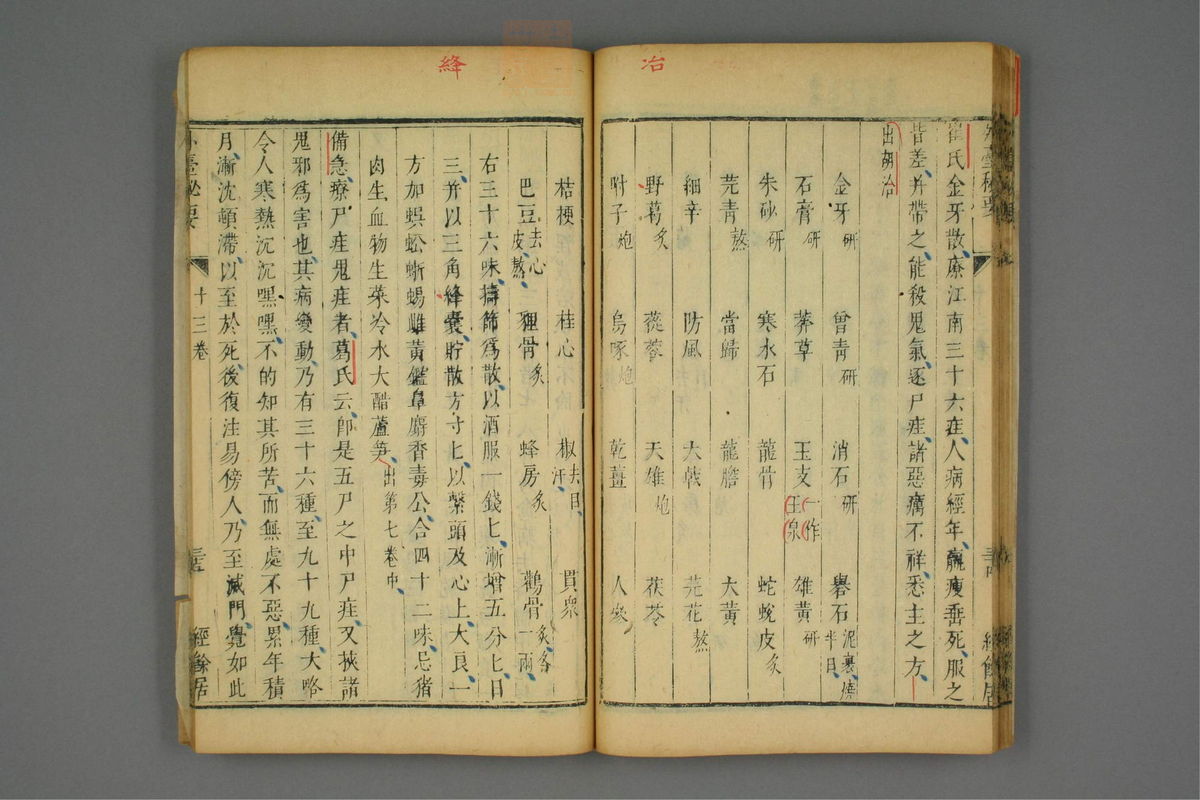 冶
崔氏金牙散療江南三十六疰人病經年羸瘦垂死服之
皆差并帶之能殺鬼氣逐尸疰諸惡癘不祥悉主之方
出胡洽
金牙研 曾青研 消石研 礜石泥裹燒半日
石膏研 莽草 玉支一作玉泉 雄黄研
朱砂研 寒水石 龍骨 蛇蛻皮炙
芫青熬 當歸 龍膽 大黄
細辛 防風 大戟 芫花熬
野葛炙 蓯蓉 天雄炮 茯苓
附子炮 烏啄炮 乾薑 人參
絳
桔梗 桂心 椒去目汗 貫衆
巴豆去心皮熬 狸骨炙 蜂房炙 鸛骨炙各一兩
右三十六味擣篩爲散以酒服一錢匕漸增五分匕日
三并以三角絳囊貯散方寸匕以繫頭及心上大良一
方加蜈蚣蜥蜴雌黄鑑鼻麝香毒公合四十二味忌猪
肉生血物生菜冷水大醋蘆笋出第七卷中
備急療尸疰鬼疰者葛氏云即是五尸之中尸疰又挾諸
鬼邪爲害也其病變動乃有三十六種至九十九種大略
令人寒熱沉沉嘿嘿不的知其所苦而無處不惡累年積
月漸沈頓滯以至於死後復注易傍人乃至滅門覺如此
外臺祕要 十三卷 經餘居